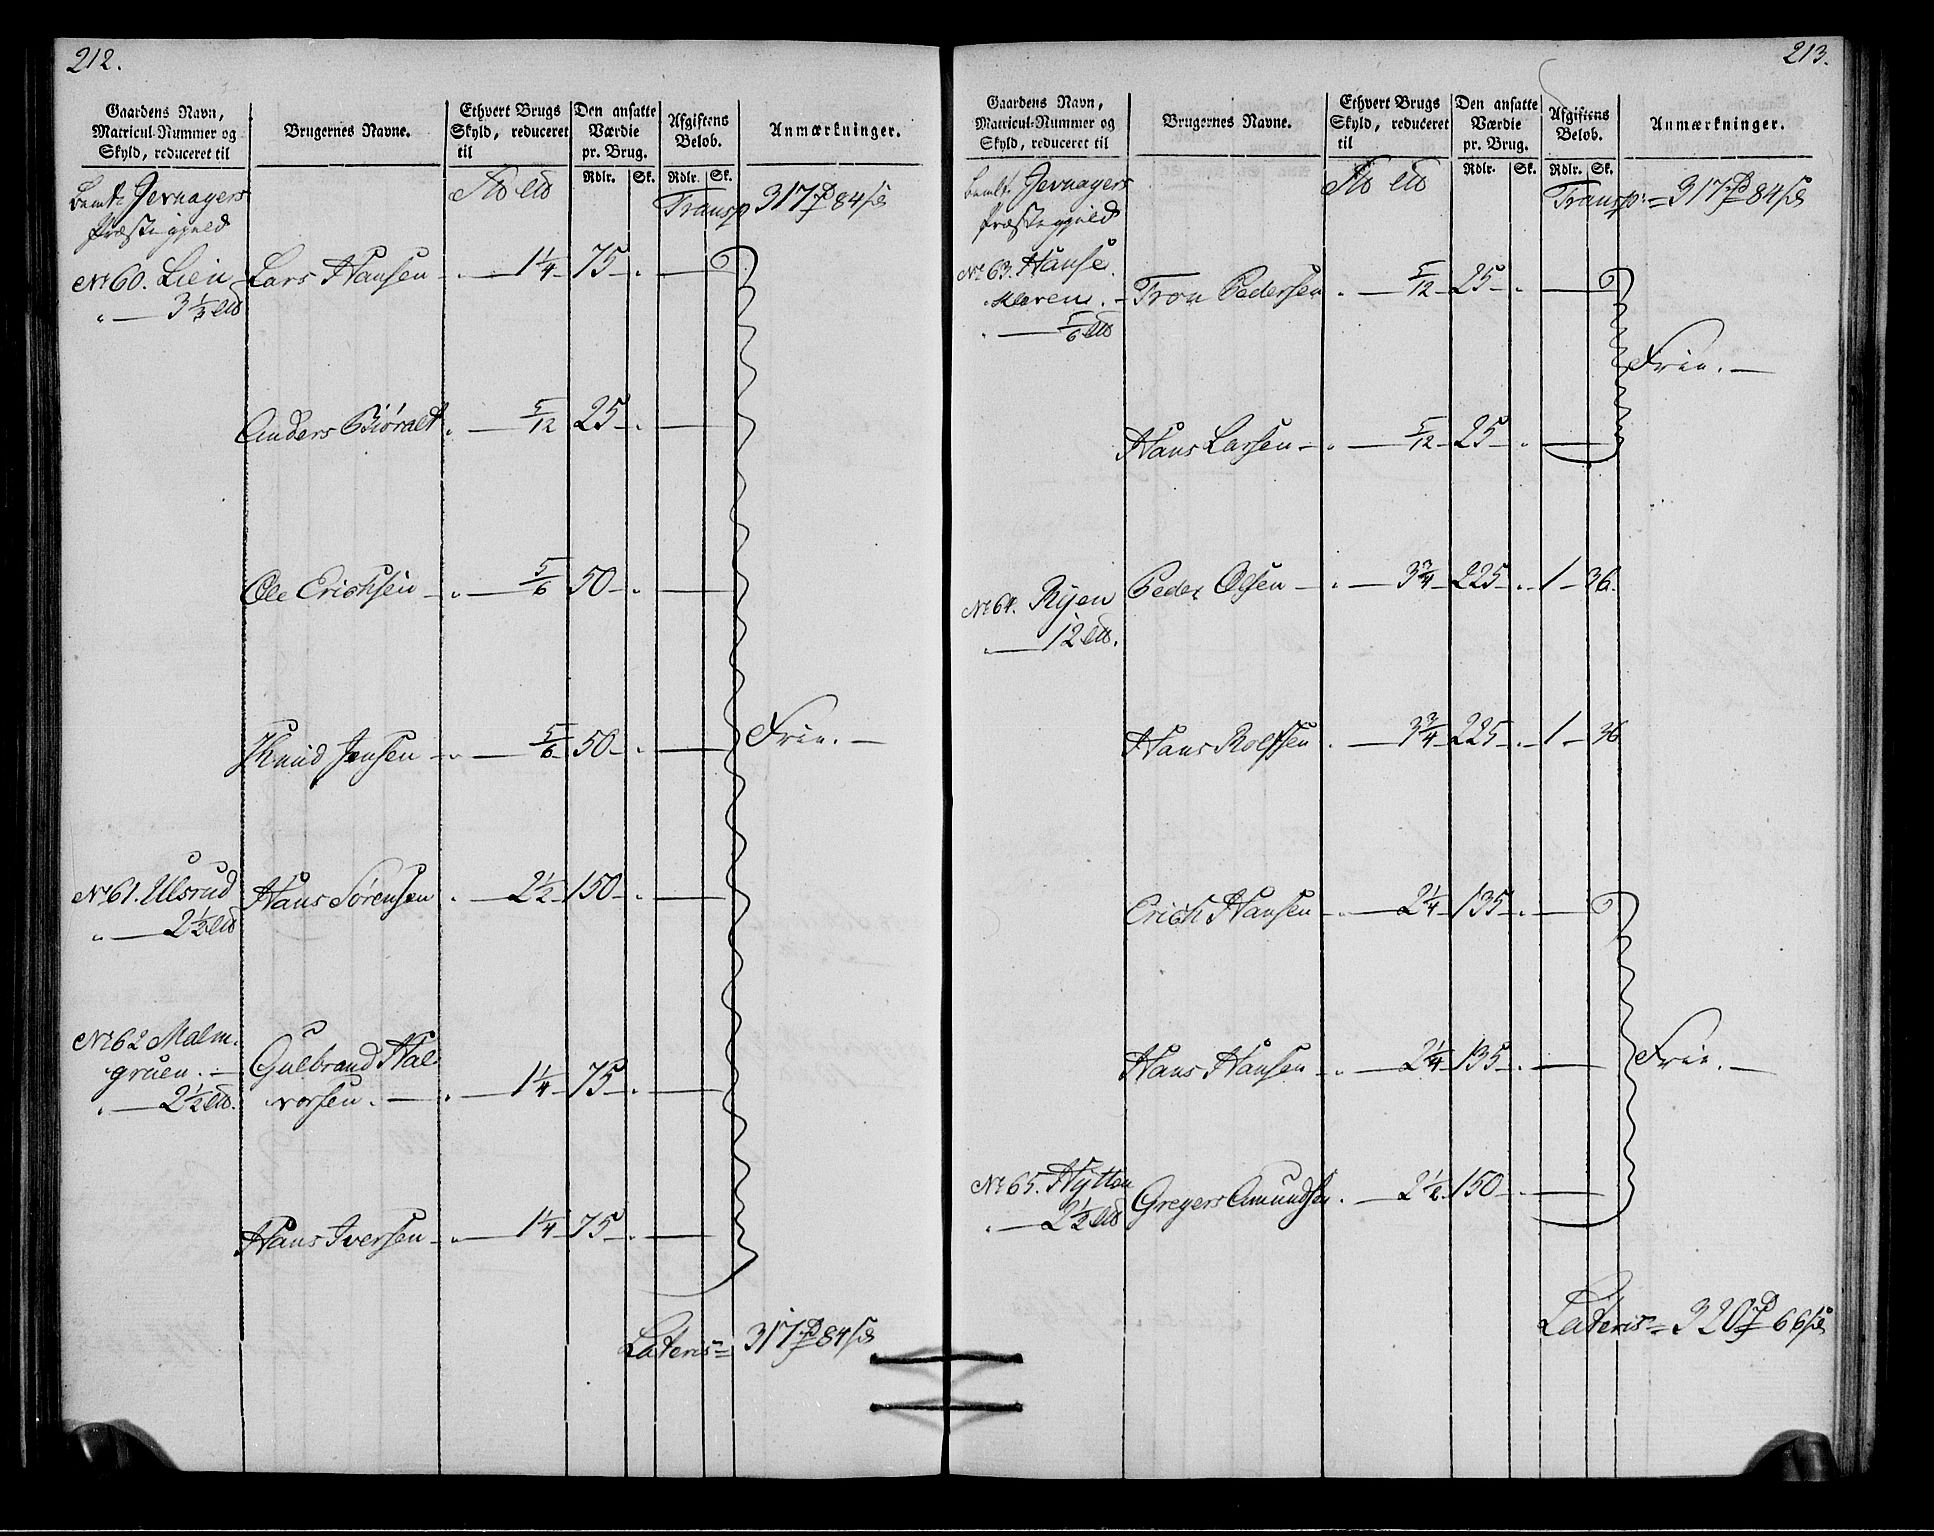 212.
Gaardens Navn, Matricul-Nummer og Skyld, reduceret til
Brugernes Navne.
Ethvert Brugs Skyld, reduceret til
Den ansatte Værdie pr. Brug.
Afgiftens Beløb.
Anmærkninger.
Rdlr. Sk. Rdlr. Sk.
bemte Jevnagers Præstegjeld
Transp 317 84
No 60. Lien Lars Hansen 1 1/4 75
3 1/3
Anders Biøralt 5/12 25
Ole Erichsen 5/6 50
Knud Jensen 5/6 50 Frie.
No 61. Ulsrud Hans Sørensen 2 1/2 150
2 1/2
No 62 Malm-
gruen. Gulbrand Hal
2 1/2 vorsen. 1 1/4 75
Hans Iversen 1 1/4 75
Lateris = 317 84
213.
Gaardens Navn, Matricul-Nummer og Skyld, reduceret til
Brugernes Navne.
Ethvert Brugs Skyld, reduceret til
Den ansatte Værdie pr. Brug.
Afgiftens Beløb.
Anmærkninger.
Rdlr. Sk. Rdlr. Sk.
bemte Jevnagers Præstegjeld
Transp: = 317 84
No 63. Hanse
Tron Pedersen 5/12 25
5/6
Frie.
Hans Larsen 5/12 25
No 64. Ryen Peder Olsen 3 3/4 225 1 36.
12
Hans Rolfsen 3 3/4 225 1 36
Erich Hansen 2 1/4 135
Hans Hansen 2 1/4 135 Frie.
No 65. Hytten Gregers Amundsen 2 1/2 150
2 1/2
Lateris = 320 66